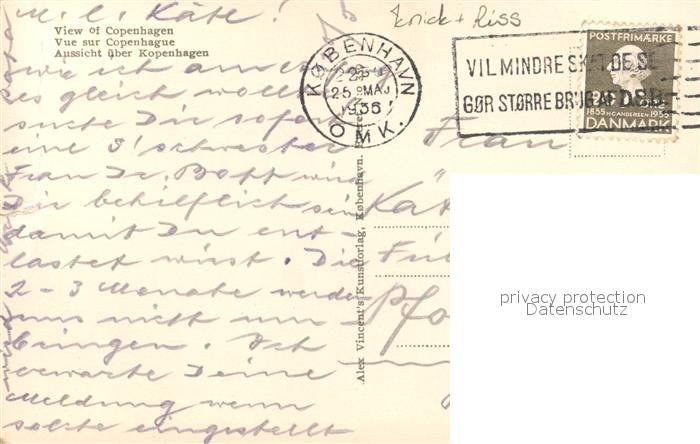 M. l. Käte!
Knick + Riss
View of Copenhagen
Vue sur Copenhague
Aussicht über Kopenhagen
wie ich am
es gleich woll
suche Dir sofort
eine S'schwester
Frau Dr. Bopp wird
Dir behilflich sein
damit Du ent-
lastet wirst. Die
2-3 Monate werden
uns nicht um-
bringen. Ich
erwarte Deine
Meldung wenn
solche eingestellt
KØBENHAVN
25 MAJ
1935
OMK.
VIL MINDRE SKAL DE SE
GØR STØRRE BRUG AF D.S.B.
POSTFRIMÆRKE
1835 H.C. ANDERSEN 1935
DANMARK
Frau
Kät
Fü
Pfo
Alex Vincent's Kunstforlag, København.
privacy protection
Datenschutz